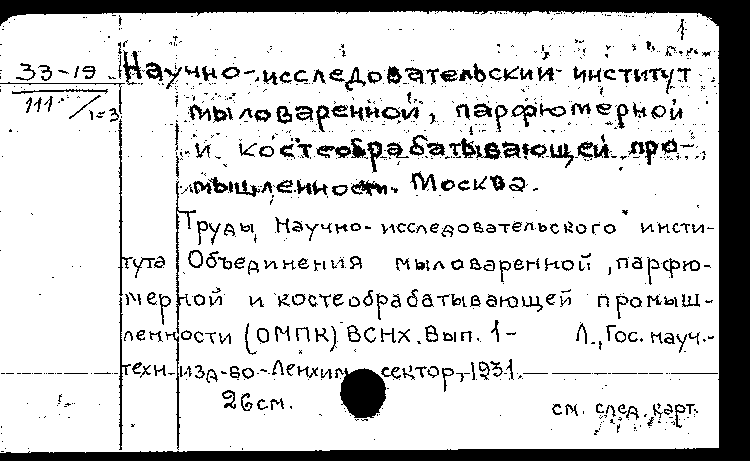 33-19
111 / 1=3
Научно-исследовательский институт
мыловаренной, парфюмерной
и костеобрабатывающей про-
мышленности. Москва.
Труды Научно-исследовательского инсти-
тута Объединения мыловаренной, парфю-
мерной и костеобрабатывающей промыш-
ленности (ОМПК) ВСНХ. Вып. 1- Л., Гос. науч.-
техн. изд-во-Ленхим сектор, 1931.
26 см.
см. след. карт.